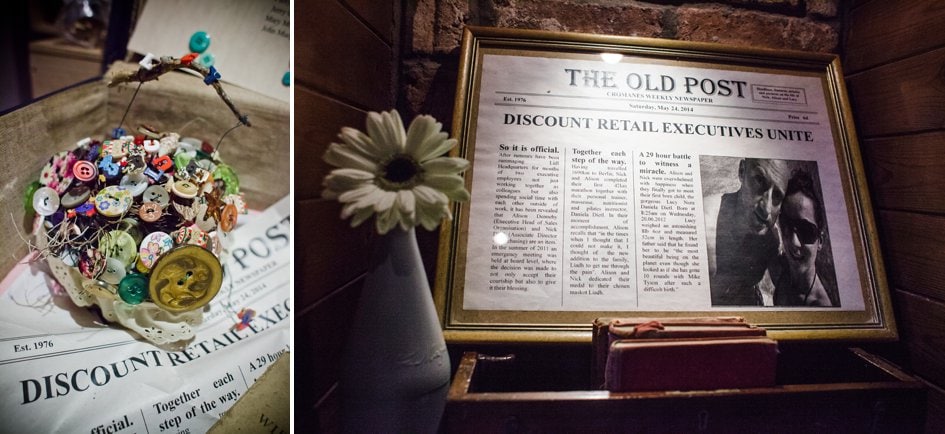 Est. 1976
DISCOUNT RETAIL EXEC
Together each
step of the way.
A 29 hour
THE OLD POST
CROMANES WEEKLY NEWSPAPER
Est. 1976
Saturday, May 24, 2014
Price 6d
DISCOUNT RETAIL EXECUTIVES UNITE
So it is official.
After rumours have been
rummaging Lidl
Headquarters for months
of two executive
employees not just
working together as
colleagues but also
spending social time with
each other outside of
work, it has been revealed
that Alison
(Executive Head of Sales
Organisation) and Nick
(Associate Director
are an item.
In the summer of 2011 an
emergency meeting was
held at board level, where
the decision was made to
not only accept their
courtship but also to give
it their blessing.
Together each
step of the way.
Having travelled
1600km to Berlin, Nick
and Alison completed
their first 42km
marathon together with
their personal trainer,
masseuse, nutritionist
and pilates instructor,
Daniela Dietl. In their
moment of
accomplishment, Alison
recalls that "in the times
when I thought that I
could not make it, I
thought of the new
addition to the family,
Lindh to get me through
the pain". Alison and
Nick dedicated their
medal to their chosen
mascot Lindh.
A 29 hour battle
to witness a
miracle. Alison and
Nick were overwhelmed
with happiness when
they finally got to meet
their first born child, the
gorgeous Lucy Nora
Daniela Dietl. Born at
8:25am on Wednesday,
20.06.2012 Lucy
weighed an astonishing
and measured
52cm in length. Her
father said that he found
her to be "the most
beautiful being on the
planet even though she
looked as if she has gone
10 rounds with Mike
Tyson after such a
difficult birth."